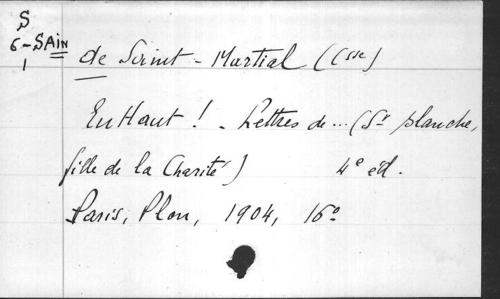 S
6-SAIN
1
de Saint-Martial (Csse)
En Haut! - Lettres de ... (Sr Blanche,
fille de la Charité) 4e éd.
Paris, Plon, 1904, 16°